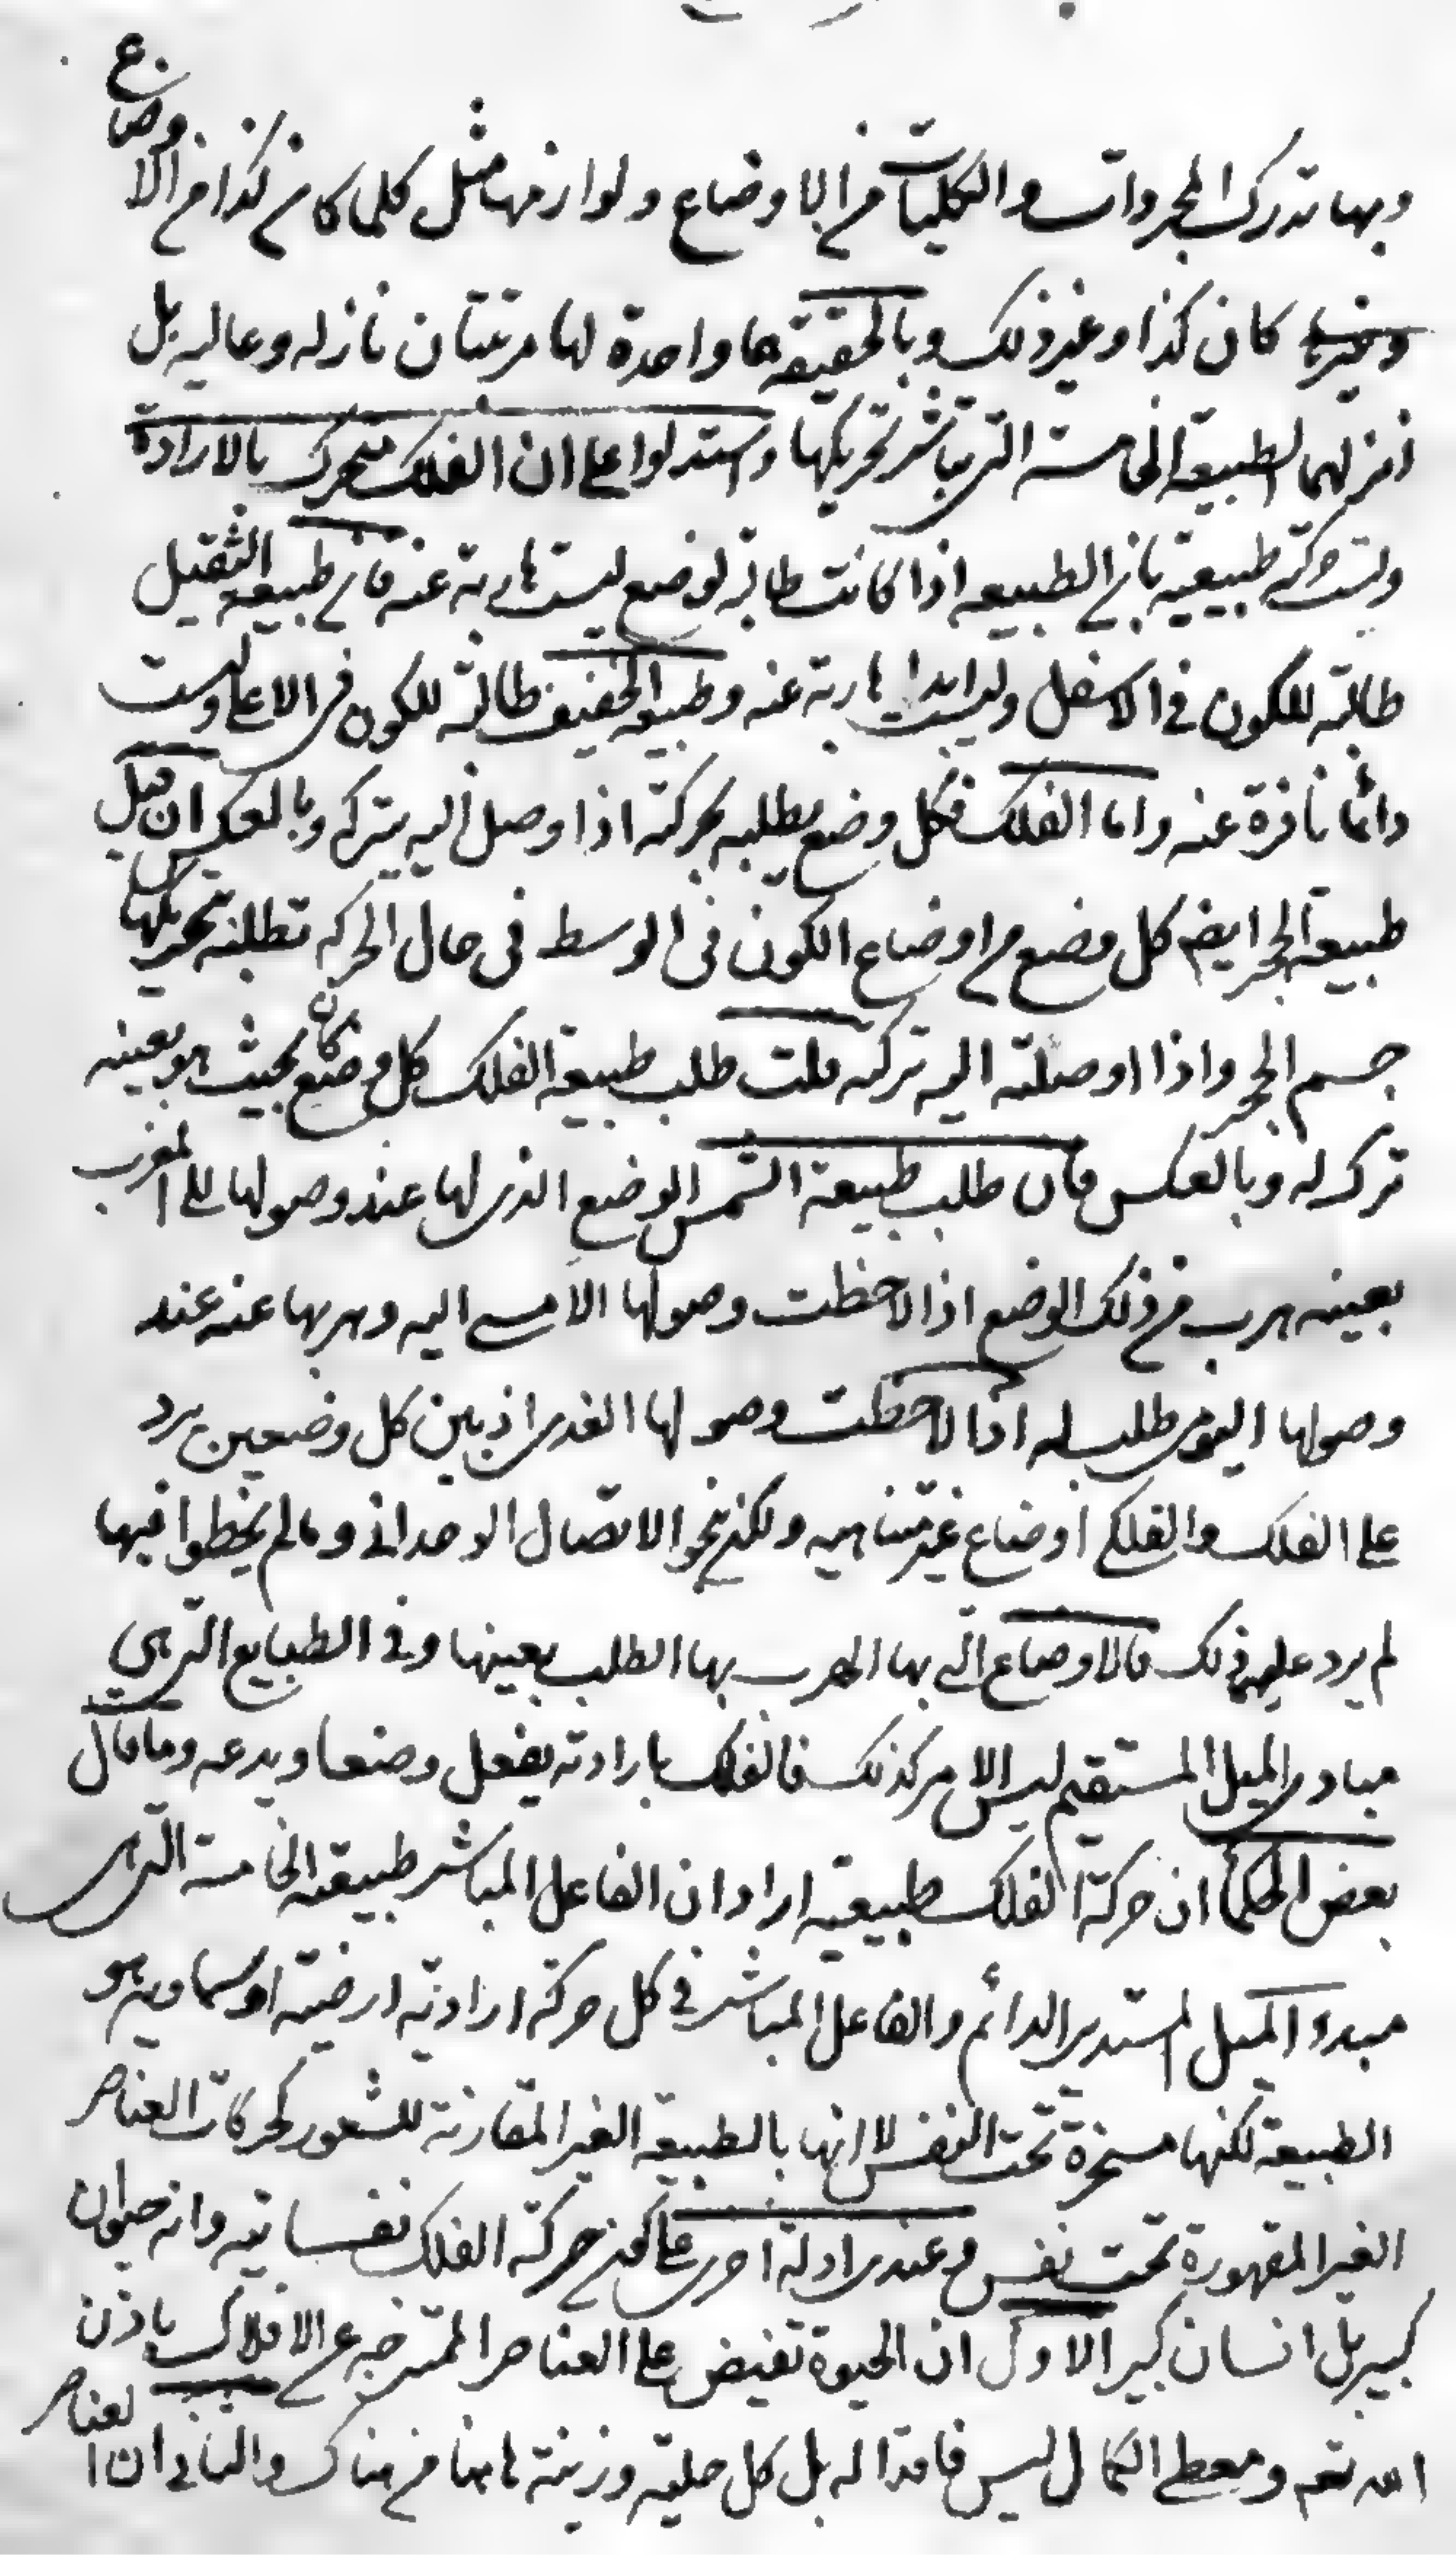 وبها تدرك المجردات والكليات من الاوضاع ولوازمها مثل كلما كان كذا من الاوضاع
كان كذا وغير ذلك وبالحقيقة هما واحدة لها مرتبتان نازله وعاليه بل
انزلهما الطبيعة الخامسة التى تباشر تحريكها واستدلوا على ان الفلك متحرك بالارادة
وليست حركته طبيعية بان الطبيعه اذا كانت طالبة لوضع ليست هاربة عنه فان طبيعة الثقيل
طالبة للكون فى الاسفل وليست ابدا هاربة عنه وطبيعة الخفيف طالبة للكون فى الاعلى وليست
دائما نافرة عنه واما الفلك فكل وضع يطلبه بحركته اذا وصل اليه يتركه وبالعكس ان قيل
طبيعة الحجر ايضا كل وضع من اوضاع الكون فى الوسط فى حال الحركه تطلبه بتحريكها
جسم الحجر واذا اوصلته اليه تركته قلت طلب طبيعة الفلك كل وضع كان بحيث هو بعينه
ترك له وبالعكس فان طلب طبيعة الشمس الوضع الذى لها عند وصولها الى المغرب
بعينه هرب من ذلك الوضع اذا لاحظت وصولها الامسى اليه وهربها عنه عند
وصولها اليومى طلب له اذا لاحظت وصولها الغدى اذ بين كل وضعين يرد
على الفلك والفلكى اوضاع غير متناهيه ولكن بنحو الاتصال الوحدانى وما لم يخطوا فيها
لم يرد عليه ذلك فالاوضاع التى بها الهرب بها الطلب بعينها وفى الطبايع التى هى
مبادى الميل المستقيم ليس الامر كذلك فالفلك بارادته يفعل وضعا ويدعه وما قال
بعض الحكماء ان حركة الفلك طبيعية اراد ان الفاعل المباشر طبيعته الخامسة التى هى
مبدء الميل المستدير الدائم والفاعل المباشر فى كل حركة ارادية ارضية او سماويه هو
الطبيعة لكنها مسخرة تحت النفس لا انها بالطبيعة الغير المقارنة للشعور كحركات العناصر
الغير المقهورة تحت نفس وعندى ادلة اخرى على كون حركة الفلك نفسانيه وانه حيوان
كبير بل انسان كبير الاول ان الحيوة تفيض على العناصر الممتزجه عن الافلاك باذن
الله تعه ومعطى الكمال ليس فاقدا له بل كل حلية وزينة هاهنا من هناك والثانى ان العناصر